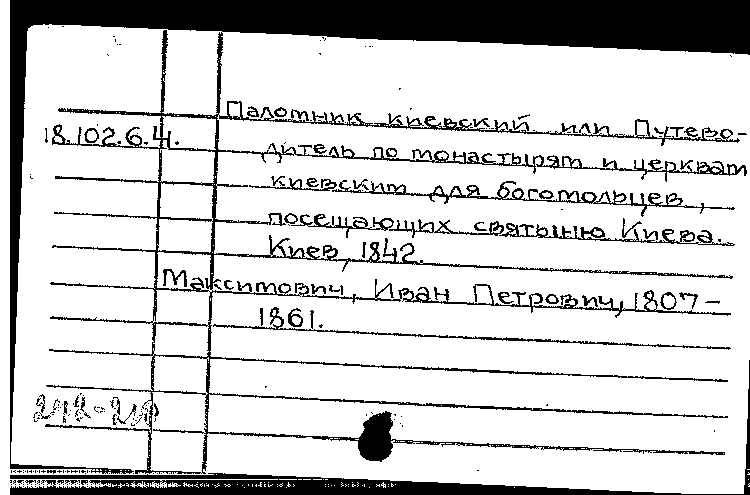 Паломник киевский или Путево-
18.102.6.4.
дитель по монастырям и церквам
киевским для богомольцев,
посещающих святыню Киева.
Киев, 1842.
Максимович, Иван Петрович, 1807-
1861.